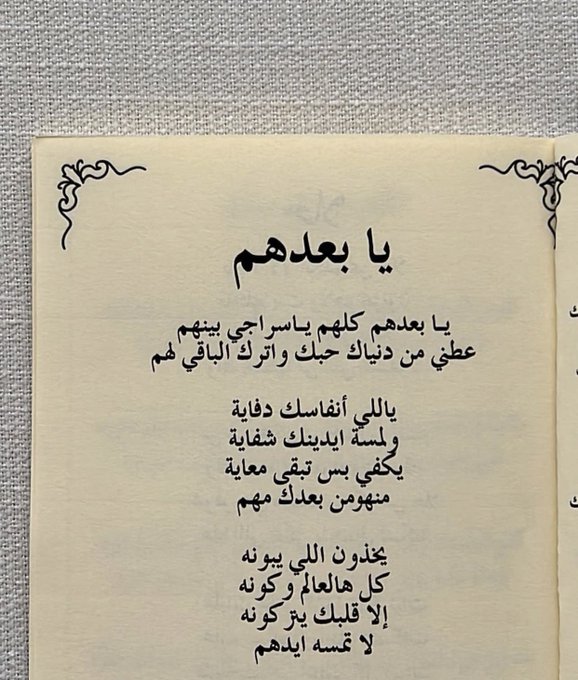 يا بعدهم
يا بعدهم كلهم ياسراجي بينهم
عطني من دنياك حبك واترك الباقي لهم
ياللي أنفاسك دفاية
ولمسة ايدينك شفاية
يكفي بس تبقى معاية
منهومن بعدك مهم
يخذون اللي يبونه
كل هالعالم وكونه
إلا قلبك يتركونه
لا تمسه ايدهم